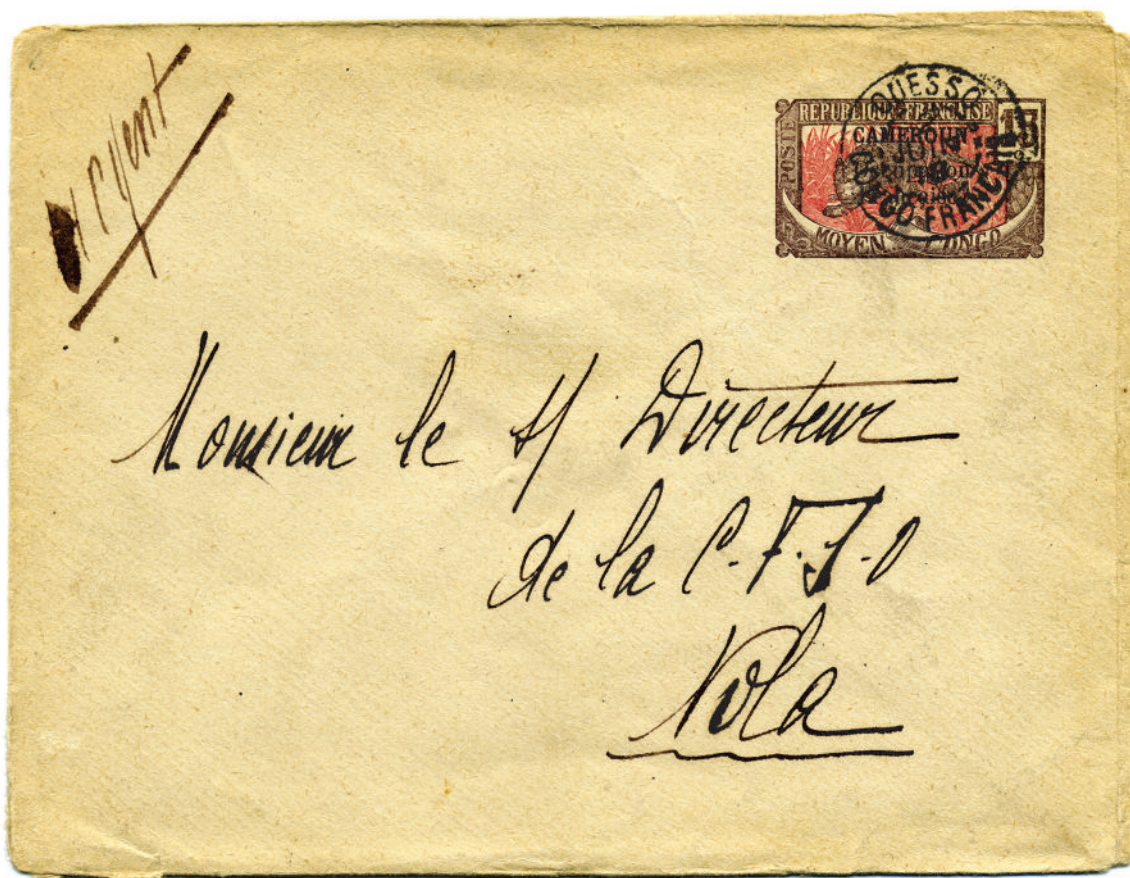 Urgent
REPUBLIQUE FRANÇAISE
POSTE
15
CAMEROUN
Occupation
Française
MOYEN CONGO
OUESSO
JUIN
CONGO FRANÇAIS
Monsieur le s/ Directeur
de la C.F.S.O
Nola